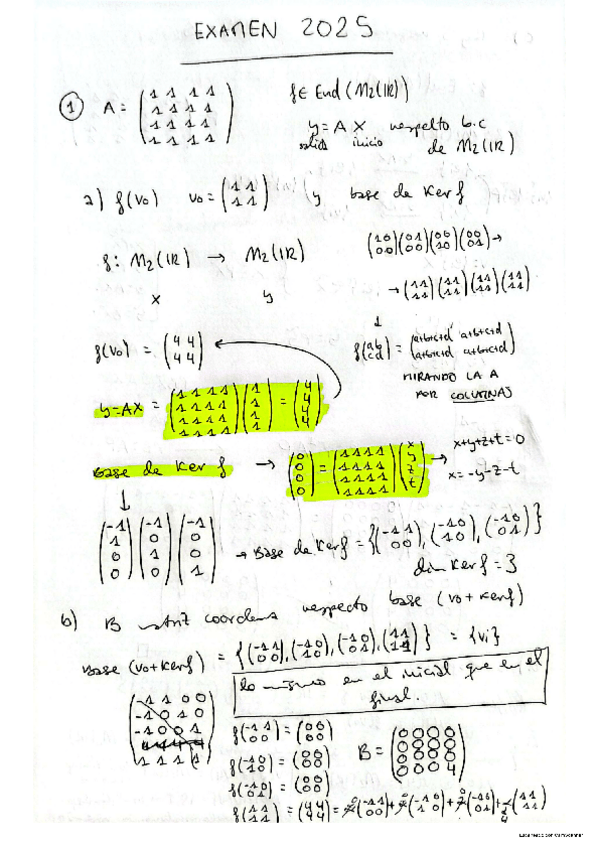 EXAMEN 2025
① A = (1 1 1 1 / 1 1 1 1 / 1 1 1 1 / 1 1 1 1) f ∈ End (M2(IR))
y = A X respecto b.c
salida inicio de M2(IR)
a) f(v0) v0 = (1 1 / 1 1) y base de Ker f
f: M2(IR) → M2(IR) (1 0 / 0 0)(0 1 / 0 0)(0 0 / 1 0)(0 0 / 0 1) →
x y → (1 1 / 1 1)(1 1 / 1 1)(1 1 / 1 1)(1 1 / 1 1)
f(v0) = (4 4 / 4 4) f(a b / c d) = (a+b+c+d a+b+c+d / a+b+c+d a+b+c+d)
MIRANDO LA A
POR COLUMNAS
y=AX = (1 1 1 1 / 1 1 1 1 / 1 1 1 1 / 1 1 1 1)(1 / 1 / 1 / 1) = (4 / 4 / 4 / 4)
Base de Ker f → (0 / 0 / 0 / 0) = (1 1 1 1 / 1 1 1 1 / 1 1 1 1 / 1 1 1 1)(x / y / z / t) → x+y+z+t=0
x=-y-z-t
(-1 / 1 / 0 / 0)(-1 / 0 / 1 / 0)(-1 / 0 / 0 / 1) → Base de Ker f = {(-1 1 / 0 0), (-1 0 / 1 0), (-1 0 / 0 1)}
dim Ker f = 3
b) B matriz coordens respecto base (v0 + Kerf)
Base (v0+Kerf) = {(-1 1 / 0 0), (-1 0 / 1 0), (-1 0 / 0 1), (1 1 / 1 1)} = {vi}
lo mismo en el inicial que en el
final.
(-1 1 0 0 / -1 0 1 0 / -1 0 0 1 / 1 1 1 1)
f(-1 1 / 0 0) = (0 0 / 0 0)
f(-1 0 / 1 0) = (0 0 / 0 0) B = (0 0 0 0 / 0 0 0 0 / 0 0 0 0 / 0 0 0 4)
f(-1 0 / 0 1) = (0 0 / 0 0)
f(1 1 / 1 1) = (4 4 / 4 4) =